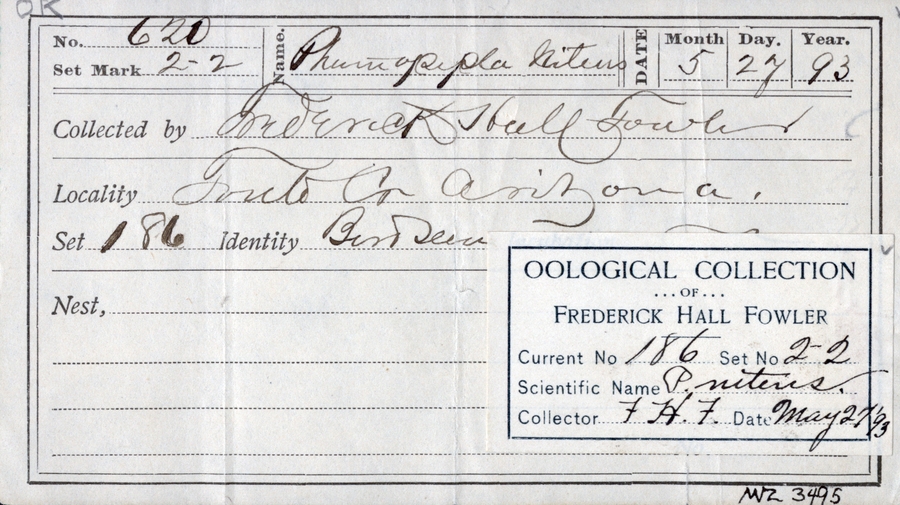 OK
No. 620 Name. Phainopepla Nitens DATE Month 5 Day. 27 Year. 93
Set Mark 2-2
Collected by Frederick Hall Fowler
Locality Tonto Cr Arizona.
Set 186 Identity Bird Seen
Nest,
OOLOGICAL COLLECTION
...OF...
FREDERICK HALL FOWLER
Current No 186 Set No 2-2
Scientific Name P. nitens.
Collector F. H. F. Date May 27/93
MVZ 3495